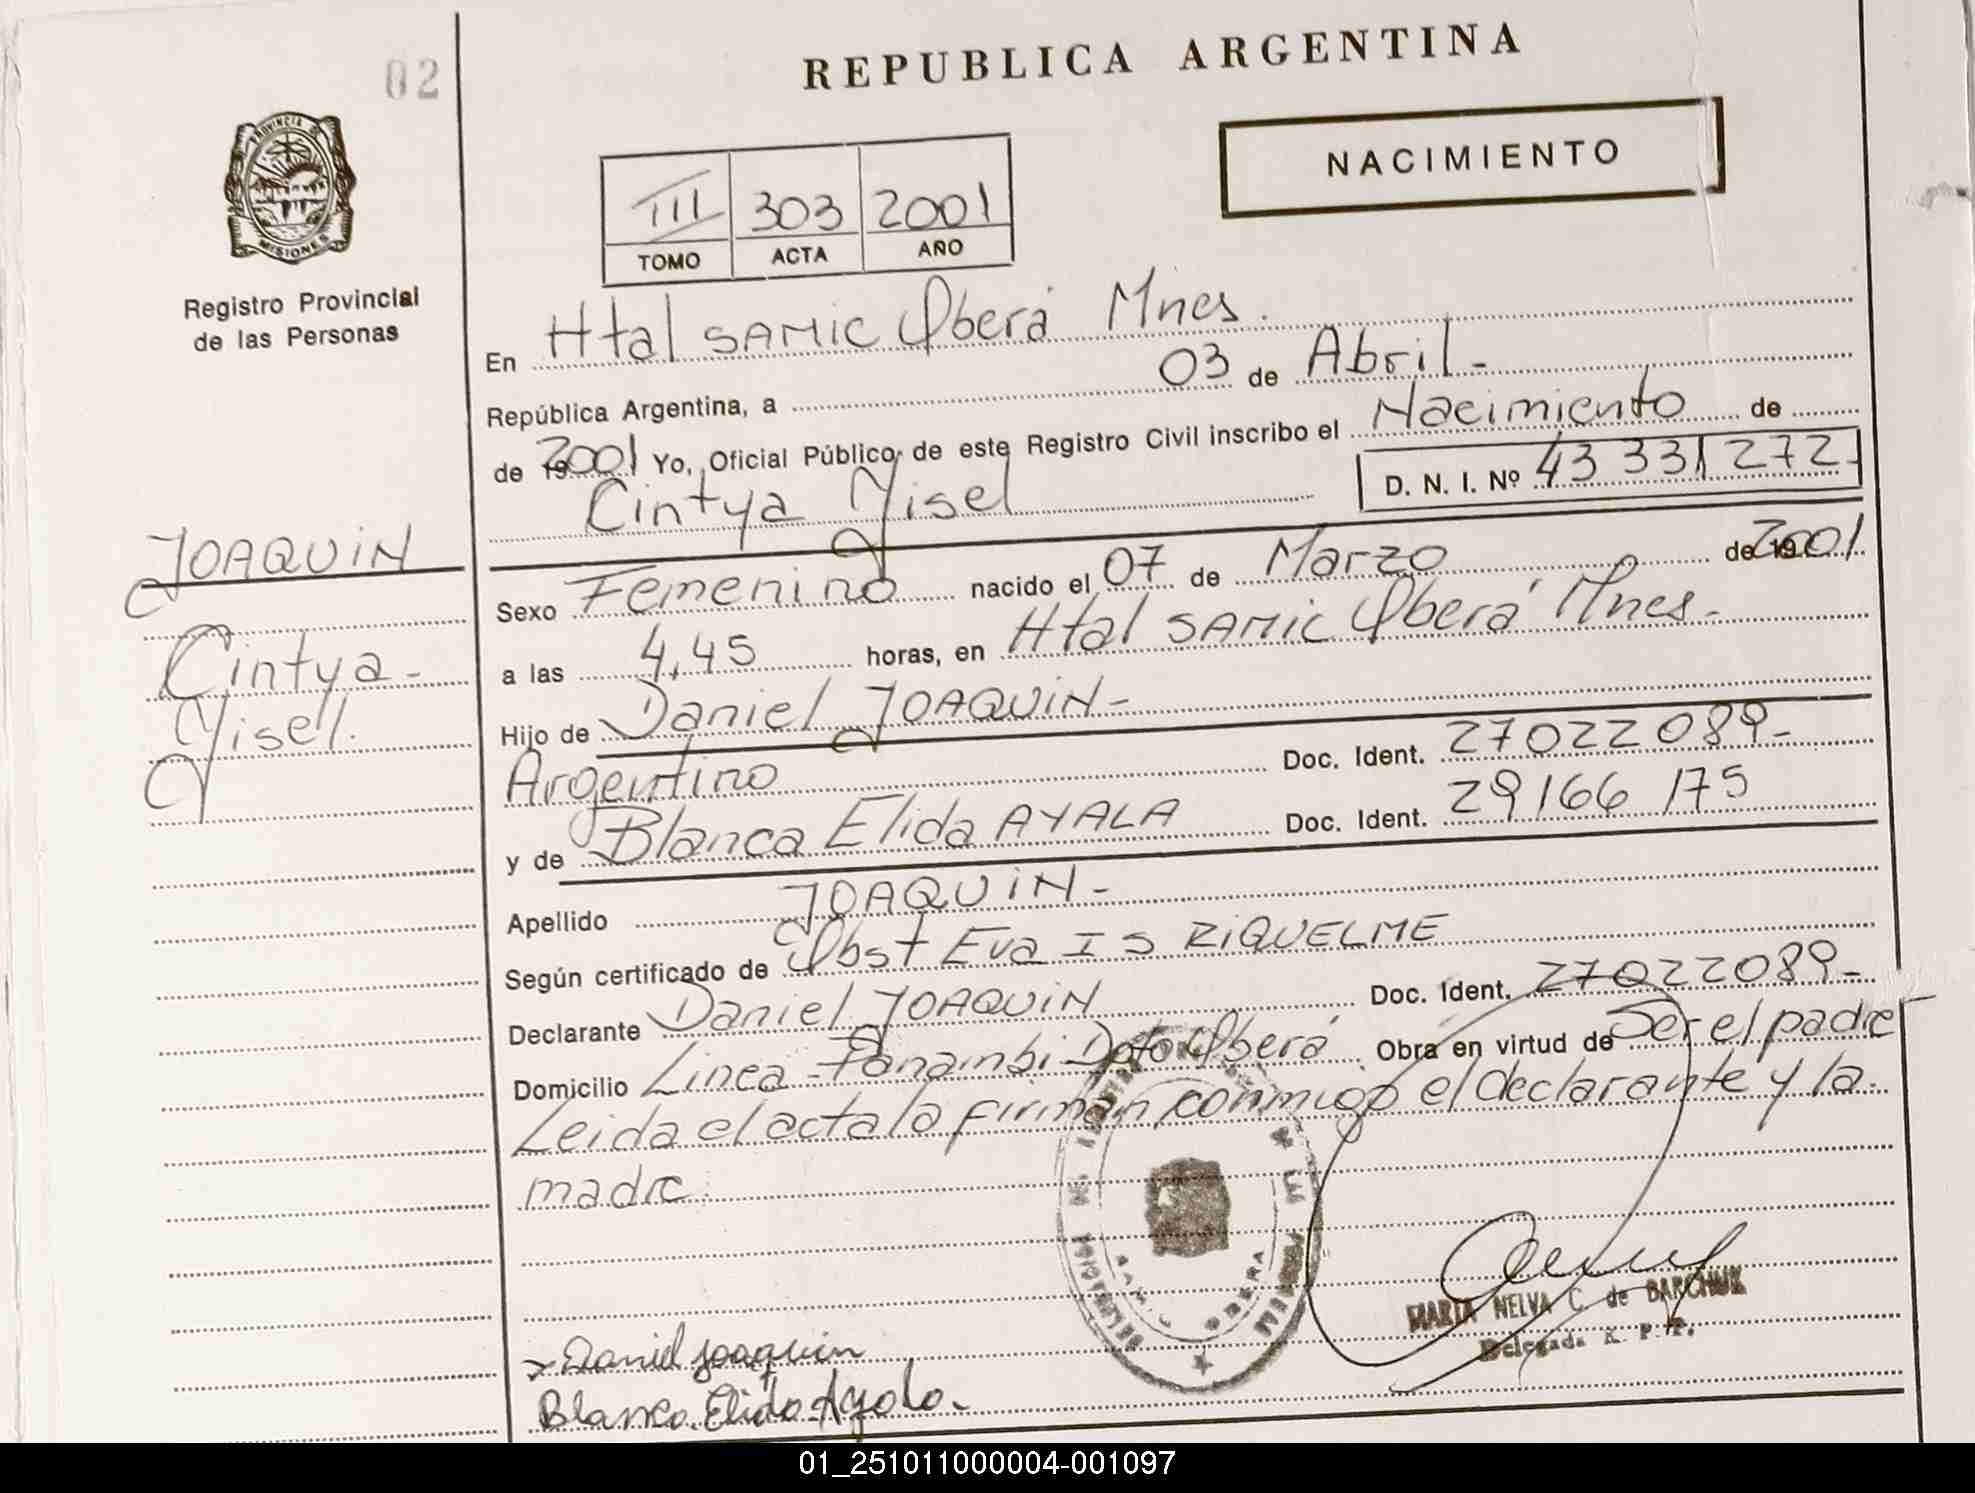 02
REPUBLICA ARGENTINA
PROVINCIA DE
MISIONES
NACIMIENTO
III 303 2001
TOMO ACTA AÑO
Registro Provincial
de las Personas
En Htal SAMIC Oberá Mnes.
República Argentina, a 03 de Abril -
de 2001 Yo, Oficial Público de este Registro Civil inscribo el Nacimiento de
Cintya Yisel
D. N. I. Nº 43 331 272-
JOAQUIN
Cintya -
Yisel.
Sexo Femenino nacido el 07 de Marzo de 2001
a las 4,45 horas, en Htal SAMIC Oberá Mnes -
Hijo de Daniel JOAQUIN -
Argentino Doc. Ident. 27022089-
y de Blanca Elida AYALA Doc. Ident. 29166 175
Apellido JOAQUIN -
Según certificado de Obst Eva I S RIQUELME
Declarante Daniel JOAQUIN Doc. Ident. 27022089-
Domicilio Linea Panambi Dpto Oberá Obra en virtud de Ser el padre
Leida el acta la firman conmigo el declarante y la
madre
MARIA NELVA C. de BARCHUK
Delegada R. P. P.
Daniel Joaquin
Blanca Elida Ayala.
01_251011000004-001097